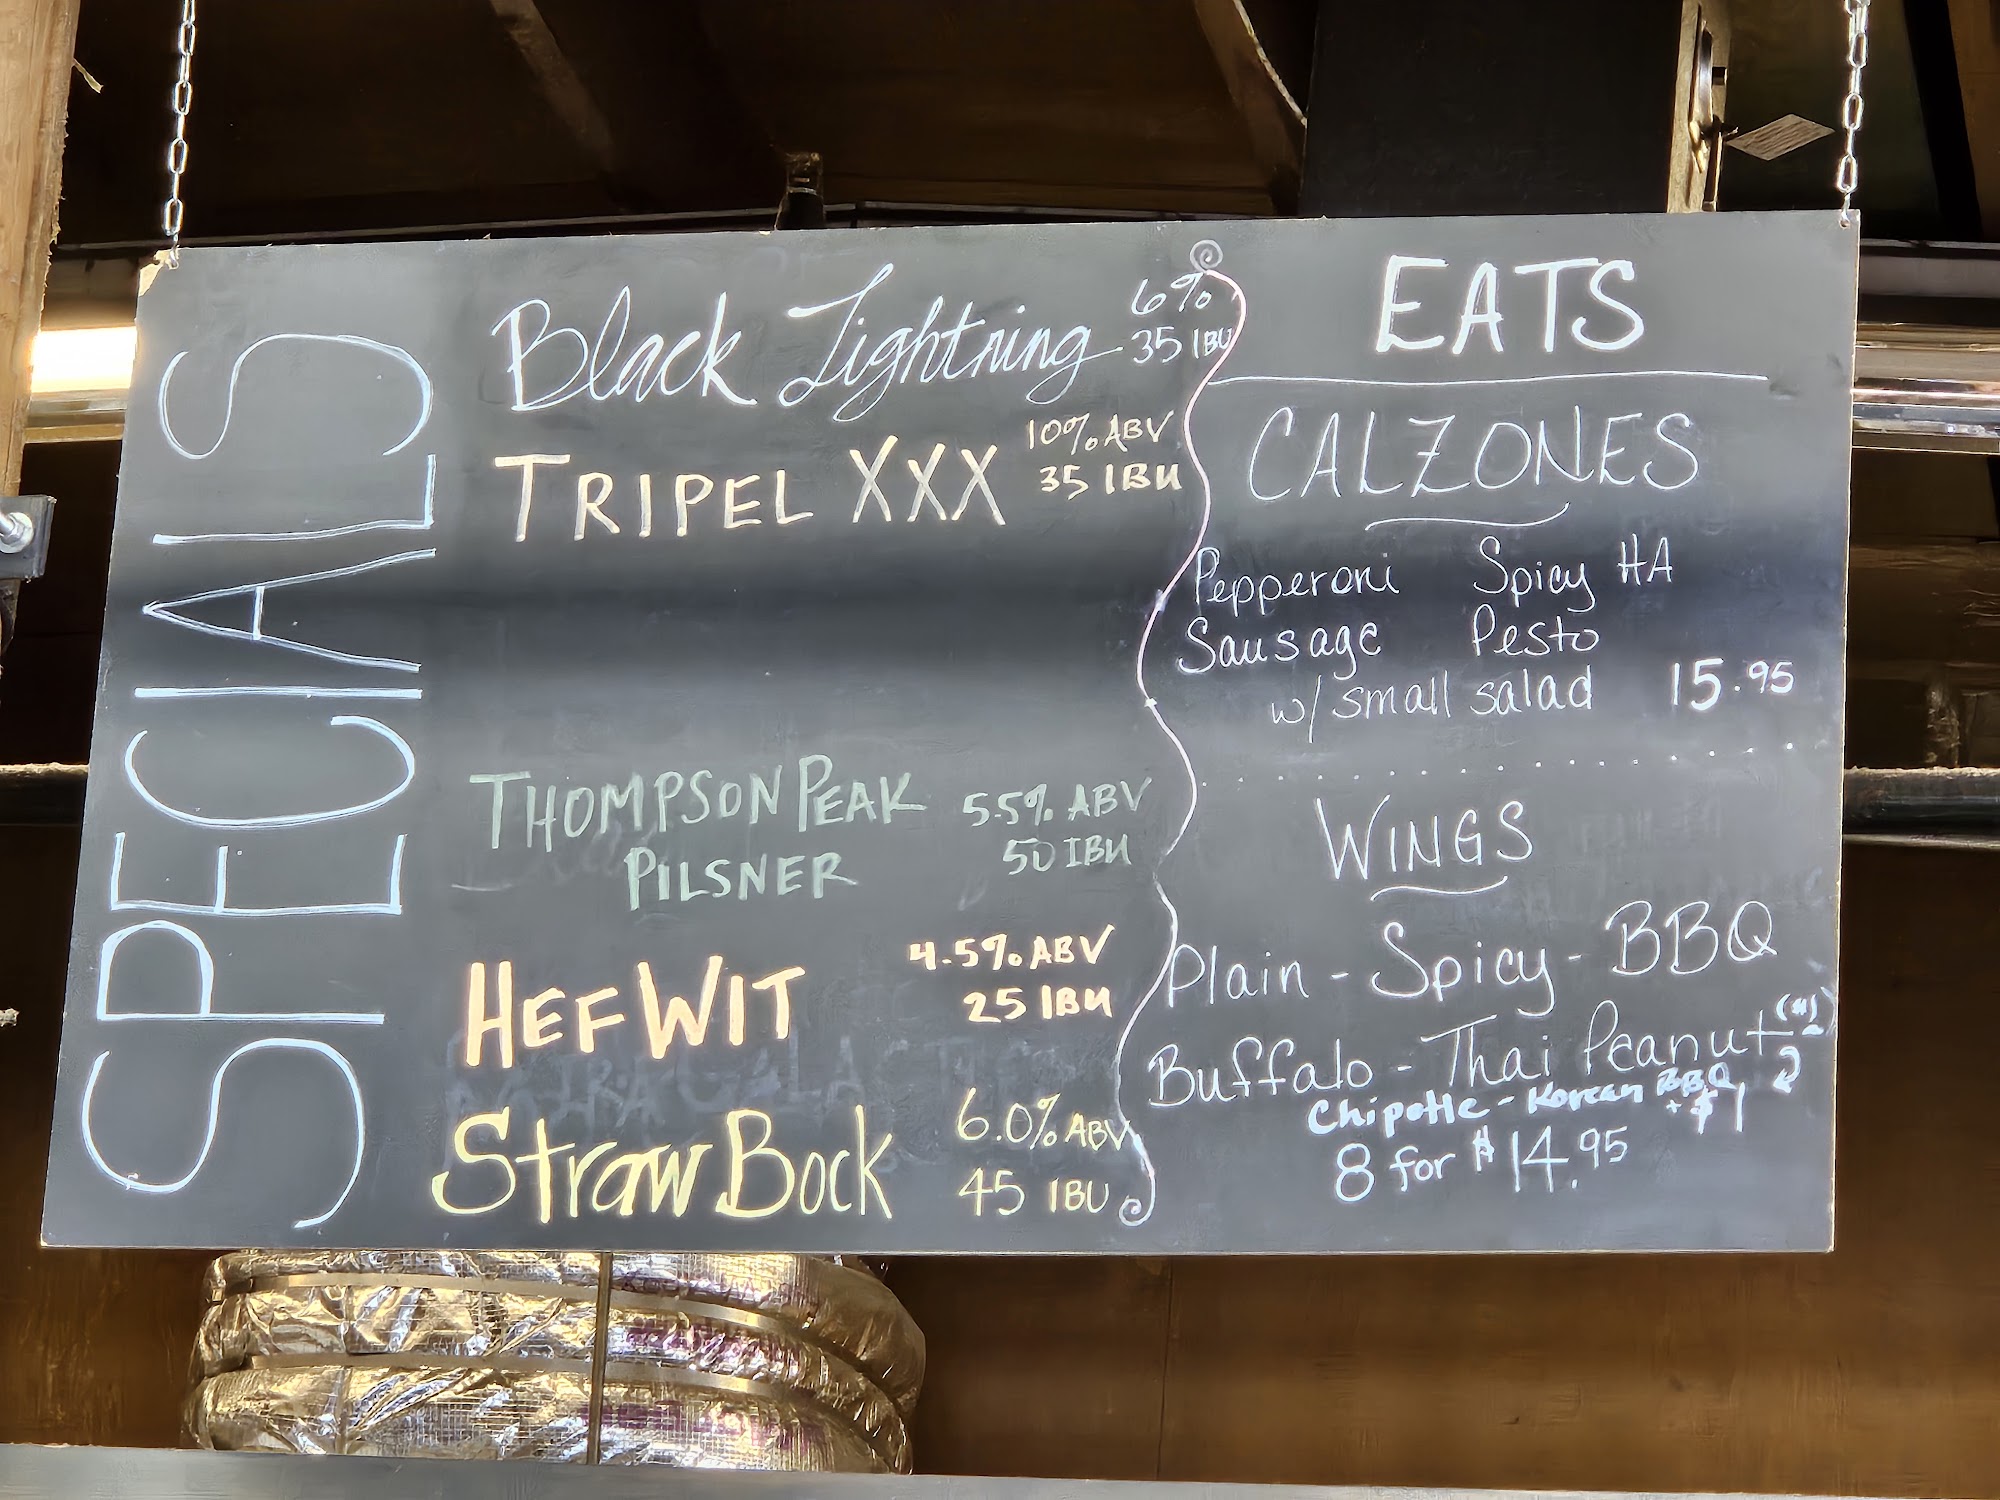 SPECIALS
Black Lightning 6%
35 IBU
TRIPEL XXX 10% ABV
35 IBU
THOMPSON PEAK 5.5% ABV
PILSNER 50 IBU
HEFWIT 4.5% ABV
25 IBU
Straw Bock 6.0% ABV
45 IBU
EATS
CALZONES
Pepperoni Spicy HA
Sausage Pesto
w/ small salad 15.95
WINGS
Plain - Spicy - BBQ
Buffalo - Thai Peanut
Chipotle - Korean BBQ
+ $1
8 for $14.95